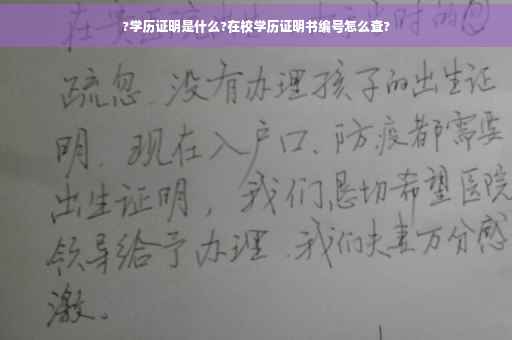 ?学历证明是什么?在校学历证明书编号怎么查?
疏忽、没有办理孩子的出生证
明、现在入户口、防疫都需要
出生证明，我们恳切希望医院
领导给予办理、我们夫妻万分感
激。